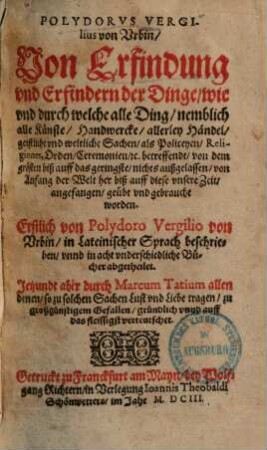 POLYDORVS VERGI-
lius von Vrbin/
Von Erfindung
vnd Erfindern der Dinge/wie
vnd durch welche alle Ding/nemblich
alle Künste/ Handwercke/ allerley Händel/
geistliche vnd weltliche Sachen/als Policeyen/ Reli-
gionen, Orden/Ceremonien/ꝛc. betreffende/ von dem
grösten biß auff das geringste/ nichts außgelassen/ von
Anfang der Welt her biß auff diese vnsere Zeit/
angefangen/ geübt vnd gebraucht
worden.
Erstlich von Polydoro Vergilio von
Vrbin/ in Lateinischer Sprach beschrie-
ben/ vnnd in acht vnderschiedliche Bü-
cher abgetheilet.
Jetzundt aber durch Marcum Tatium allen
denen/ so zu solchen Sachen Lust vnd Liebe tragen/ zu
großgünstigem Gefallen/ gründtlich vnnd auff
das fleissigst verteutschet.
AUGSBURG
Getruckt zu Franckfurt am Mayn/bey Wolff-
gang Richtern/in Verlegung Ioannis Theobaldi
Schönwetters/ im Jahr M. DCIII.